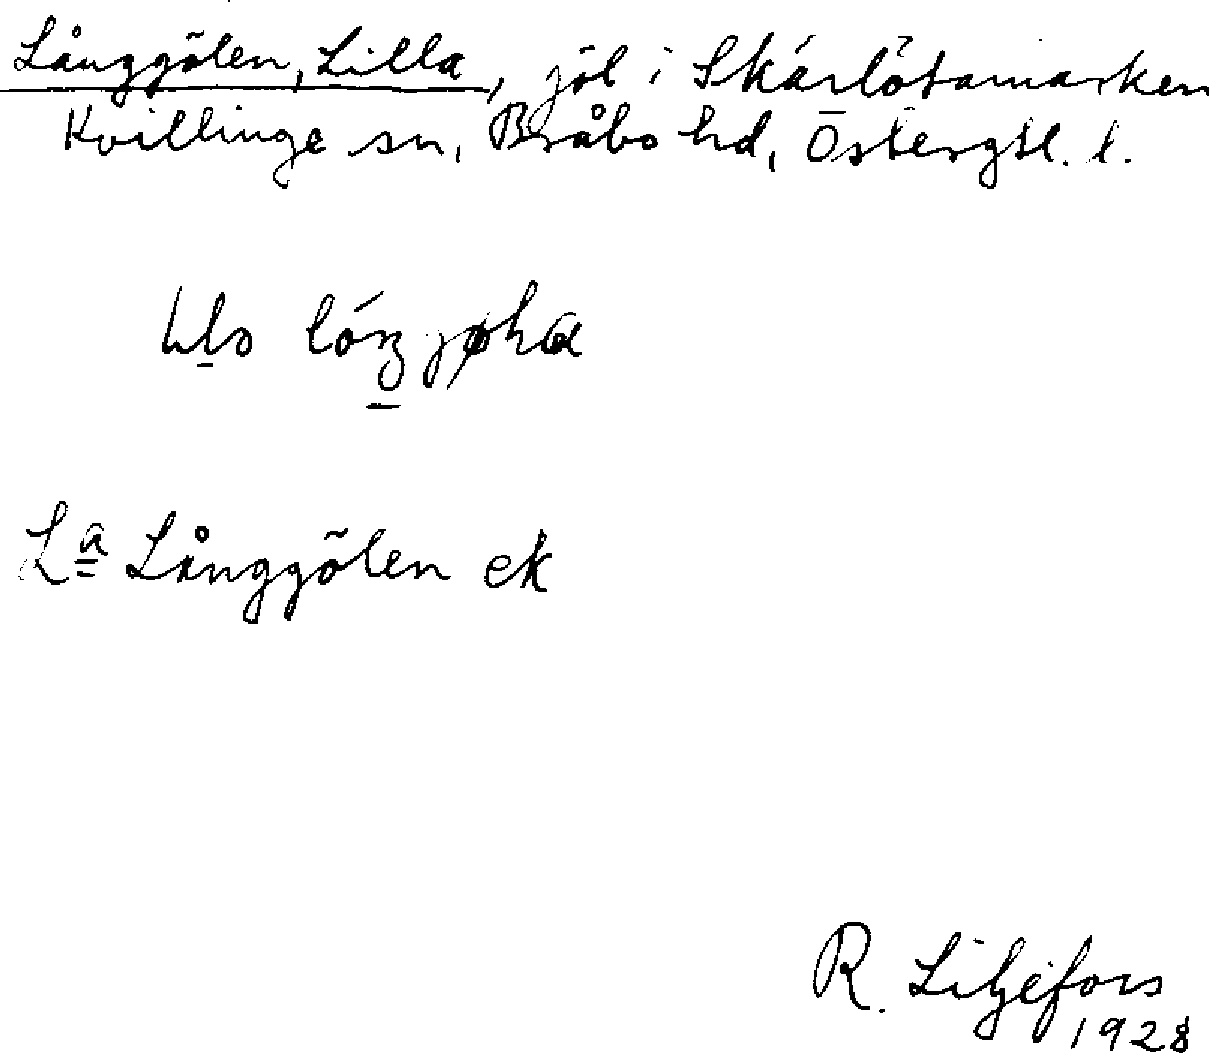 Långgölen, Lilla, jöl i Skárlötamarken
Kvillinge sn, Bråbo hd, Östergtl. l.
Lª Långgölen ek
R. Liljefors
1928